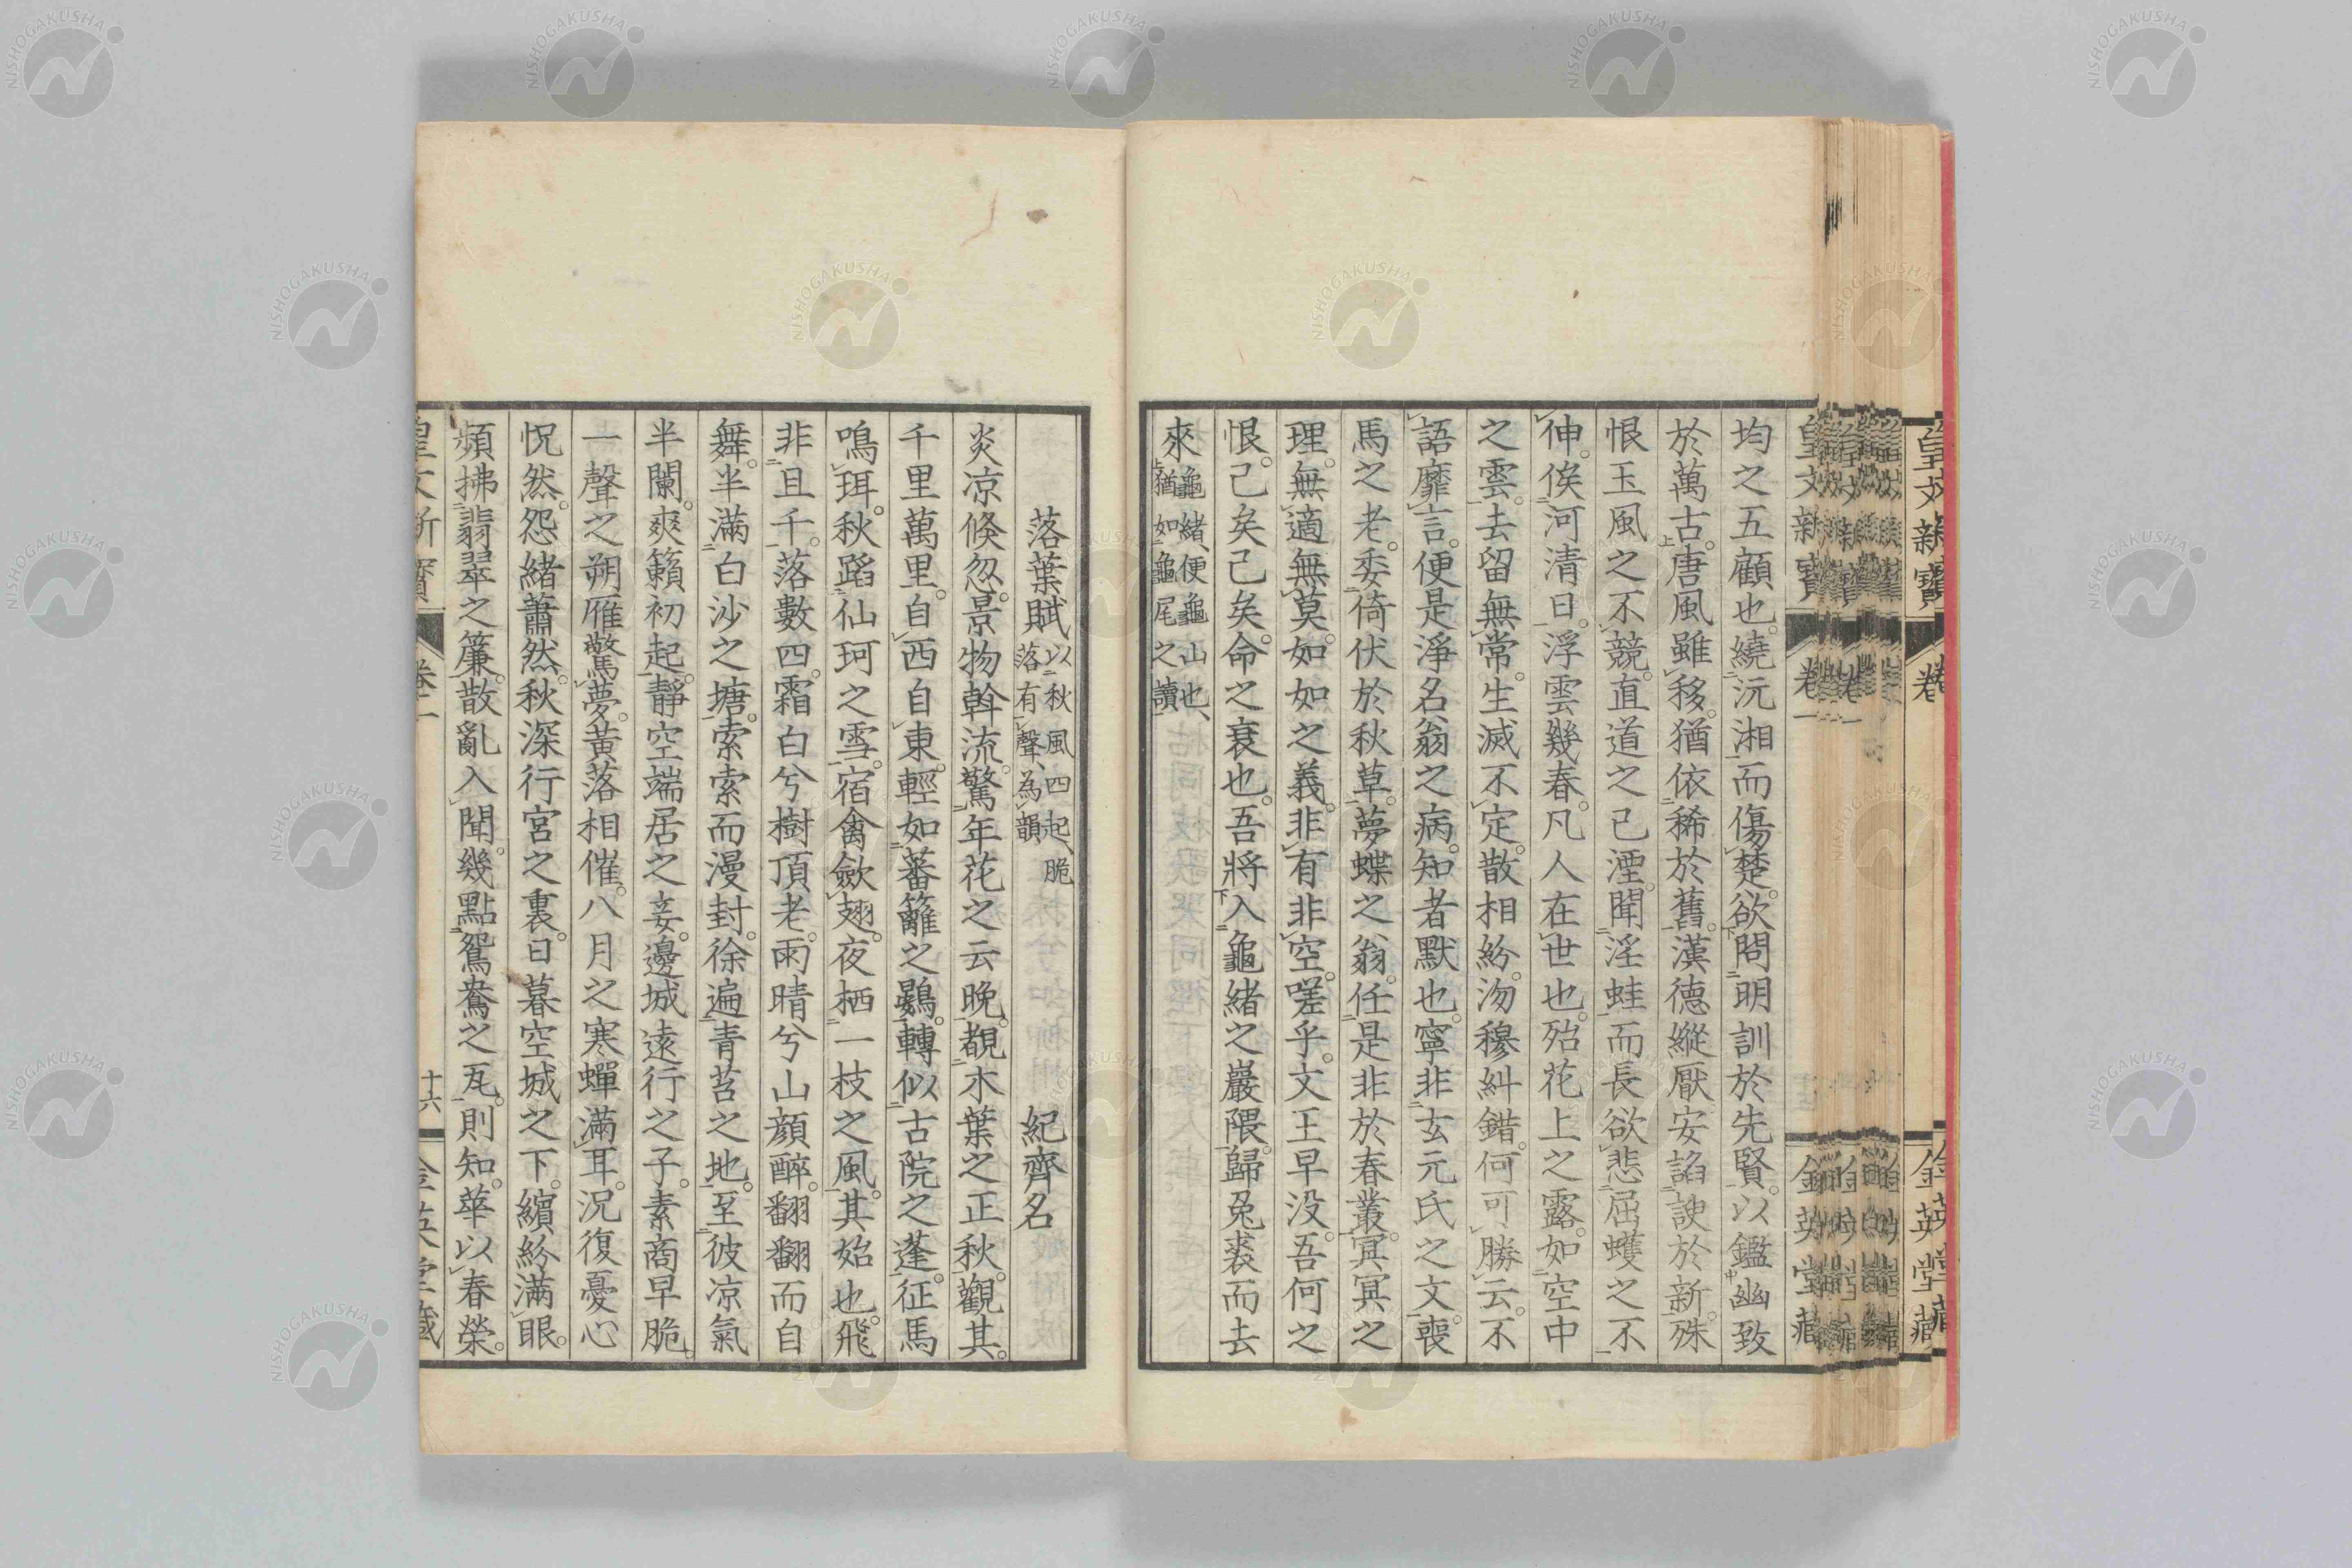 均之五顧也。繞沅湘而傷楚。欲問明訓於先賢。以鑑幽致
於萬古。唐風雖移。猶依稀於舊。漢德縱厭安諂諛於新。殊
恨玉風之不競。直道之已湮。聞淫蛙而長欲悲屈蠖之不
伸。俟河清日。浮雲幾春。凡人在世也。殆花上之露。如空中
之雲。去留無常。生滅不定。散相紛。沕穆糾錯。何可勝云。不
語靡言。便是淨名翁之病。知者默也。寧非玄元氏之文。喪
馬之老。委倚伏於秋草。夢蝶之翁。任是非於春叢。冥冥之
理。無適無莫。如如之義。非有非空。嗟乎。文王早没。吾何之
恨。已矣已矣。命之衰也。吾將入龜緒之巖隈。歸兔裘而去
來 龜緒、便龜山也、
猶如龜尾之讀
落葉賦 以秋風四起、脆
落有聲、為韻 紀齊名
炎凉倏忽。景物斡流。驚年花之云晚。覩木葉之正秋。觀其。
千里萬里。自西自東。輕如蕃籬之鷃。轉似古院之蓬。征馬
鳴珥。秋蹈仙珂之雪。宿禽斂翅。夜栖一枝之風。其始也。飛
非且千。落數四。霜白兮樹頂老。雨晴兮山顔醉。翻翻而自
舞。半滿白沙之塘。索索而漫封。徐遍青苔之地。至彼凉氣
半闌。爽籟初起。靜空端居之妾。邊城遠行之子。素商早脆。
一聲之朔雁驚夢。黄落相催。八月之寒蟬滿耳。況復憂心
怳然。怨緒蕭然。秋深行宮之裏。日暮空城之下。繽紛滿眼。
頻拂翡翠之簾。散亂入聞。幾點鴛鴦之瓦。則知。華以春榮。
皇文新寶 卷一 十六 金英堂藏
皇文新寶 卷一 金英堂藏
NISHOGAKUSHA